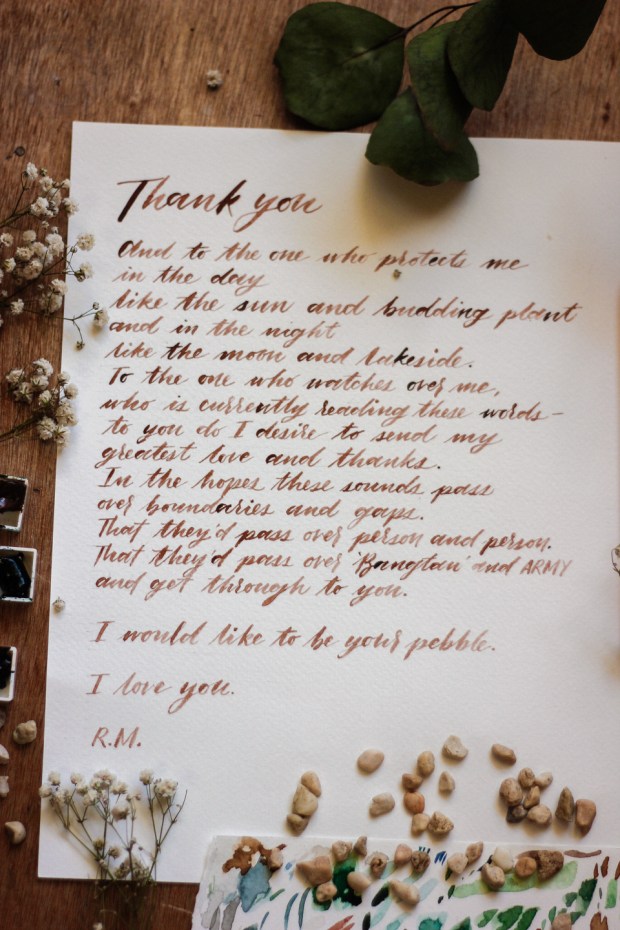 Thank you
And to the one who protects me
in the day
like the sun and budding plant
and in the night
like the moon and lakeside.
To the one who watches over me,
who is currently reading these words–
to you do I desire to send my
greatest love and thanks.
In the hopes these sounds pass
over boundaries and gaps.
That they'd pass over person and person.
That they'd pass over 'Bangtan' and ARMY
and get through to you.
I would like to be your pebble.
I love you.
R.M.